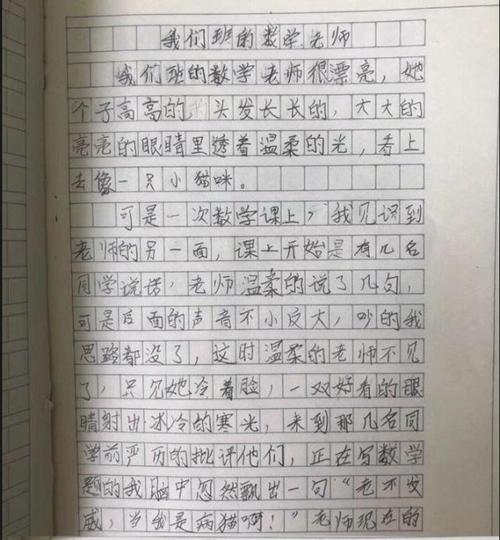 我们班的数学老师
我们班的数学老师很漂亮，她
个子高高的，头发长长的，大大的
亮亮的眼睛里透着温柔的光，看上
去像一只小猫咪。
可是一次数学课上，我见识到
老师的另一面，课上开始是有几名
同学说话，老师温柔的说了几句，
可是后面的声音不小反大，吵的我
思路都没了，这时温柔的老师不见
了，只见她冷着脸，一双好看的眼
睛射出冰冷的寒光，来到那几名同
学前严历的批评他们，正在写数学
题的我脑中忽然飘出一句“老不发
威，当我是病猫啊！”老师现在的